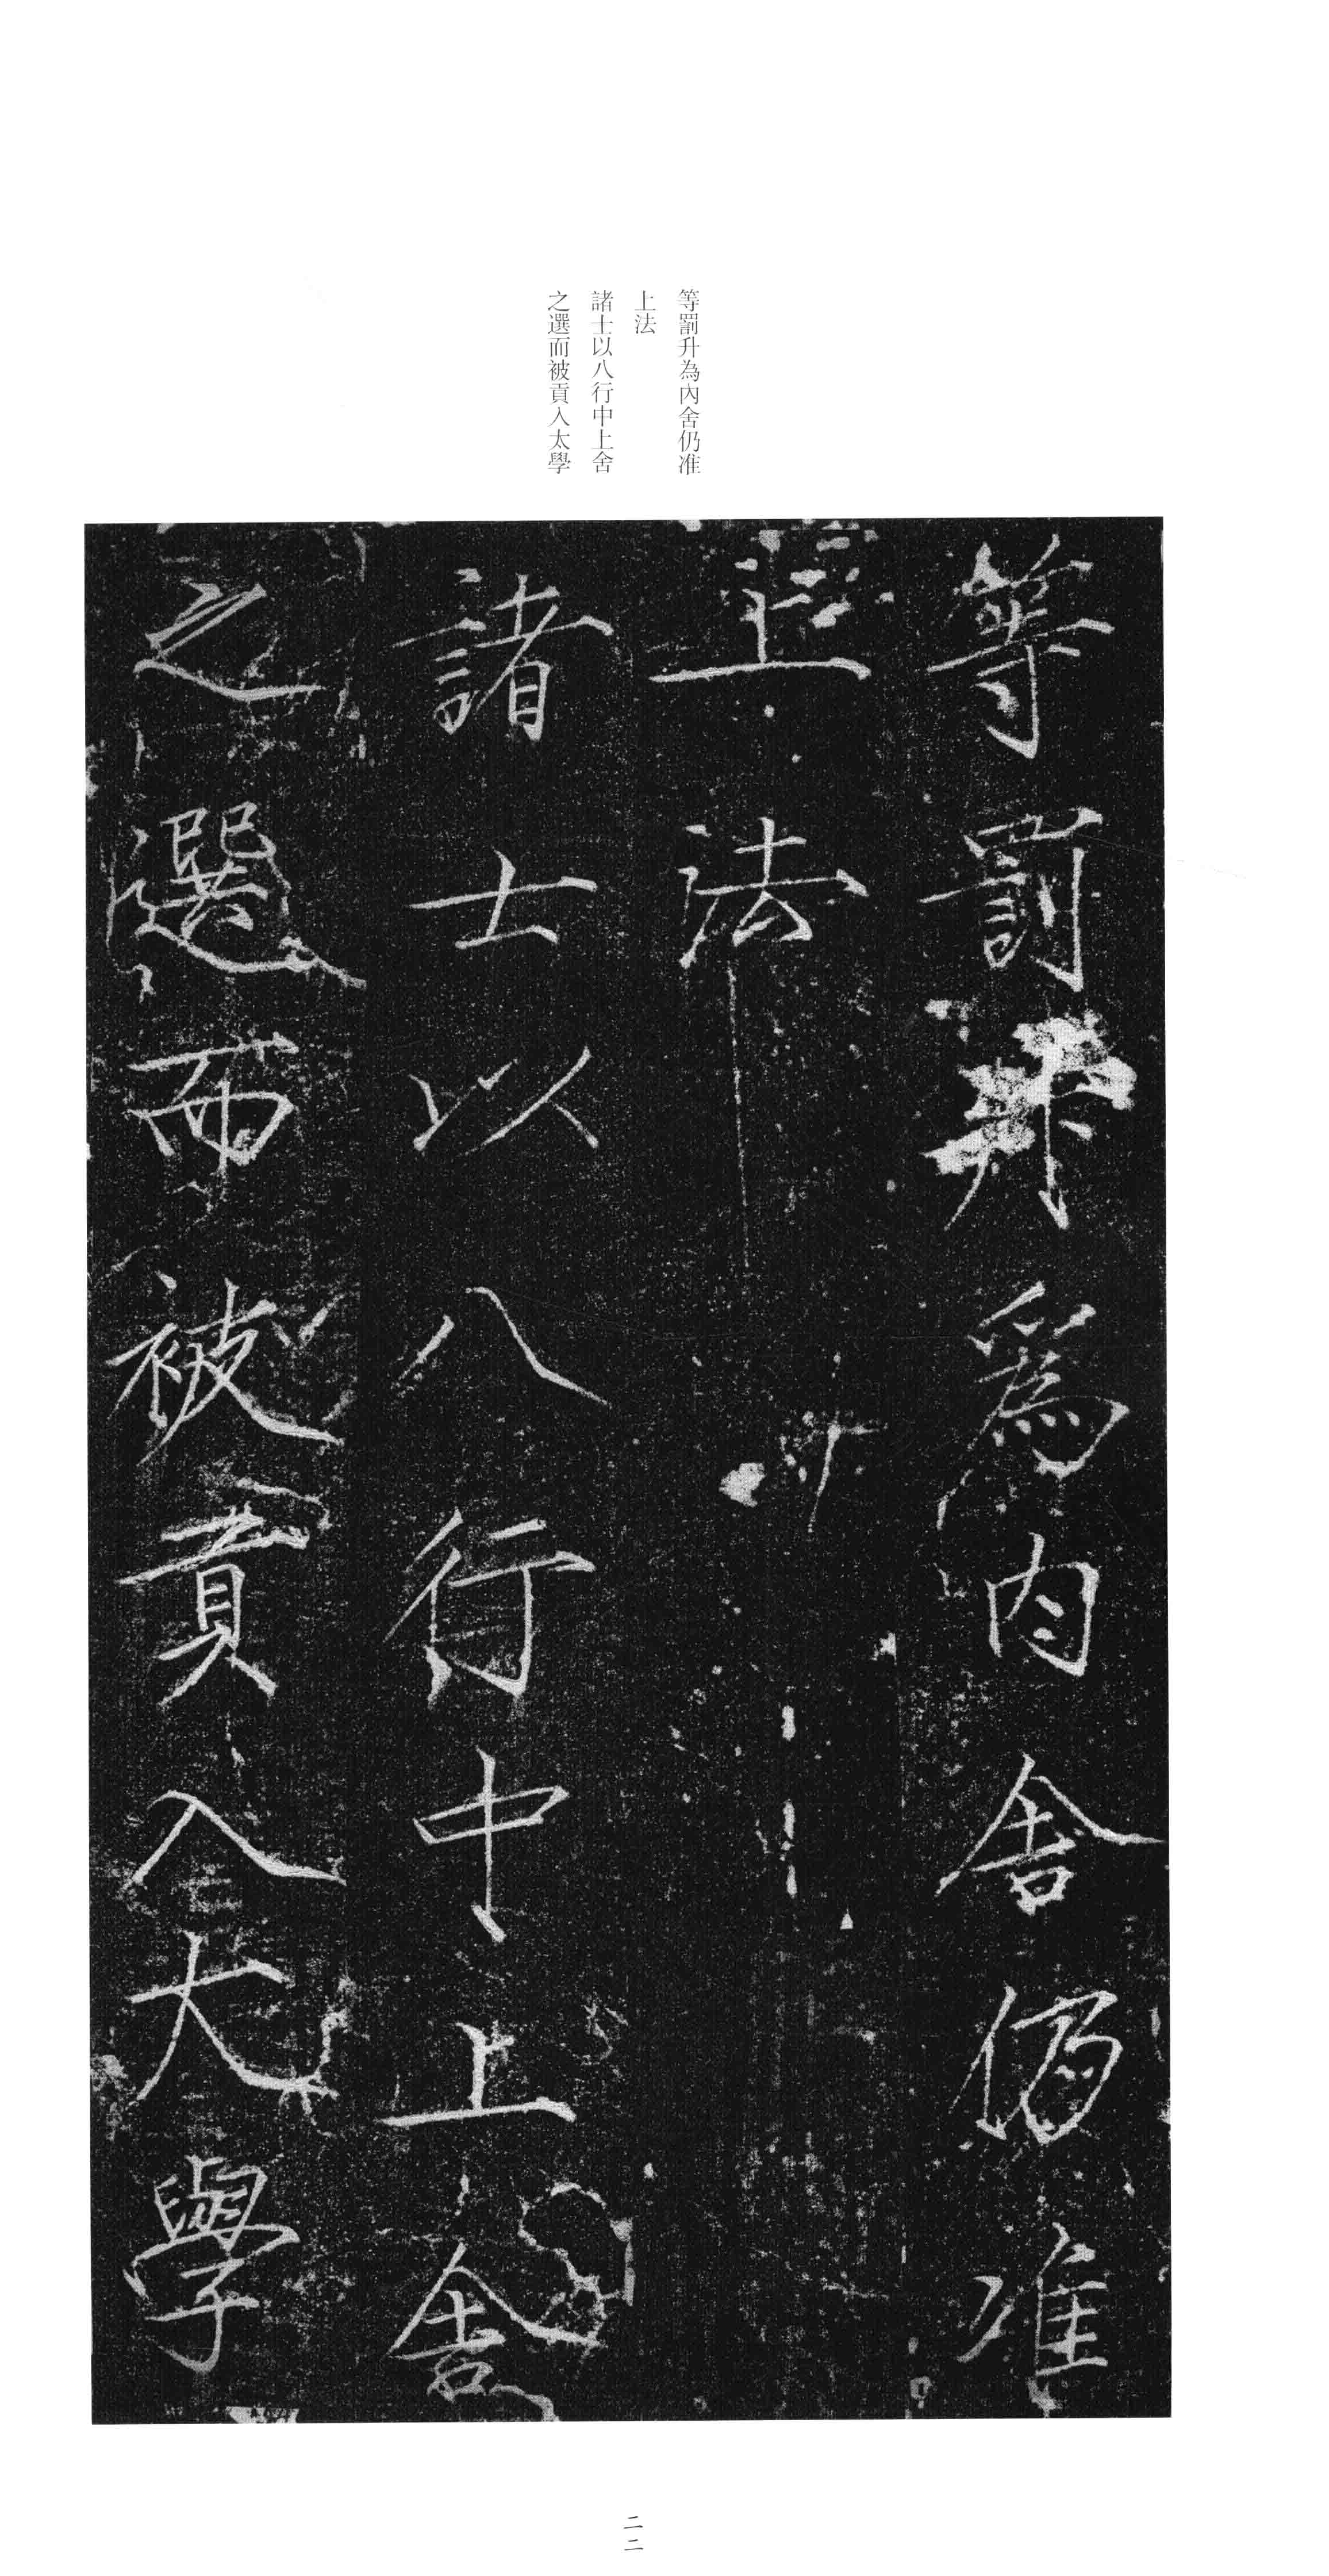 等罰升為內舍仍准
上法
諸士以八行中上舍
之選而被貢入太學
等罰升爲内舍仍准
上法
諸士以八行中上舍
之選而被貢入太學
二二